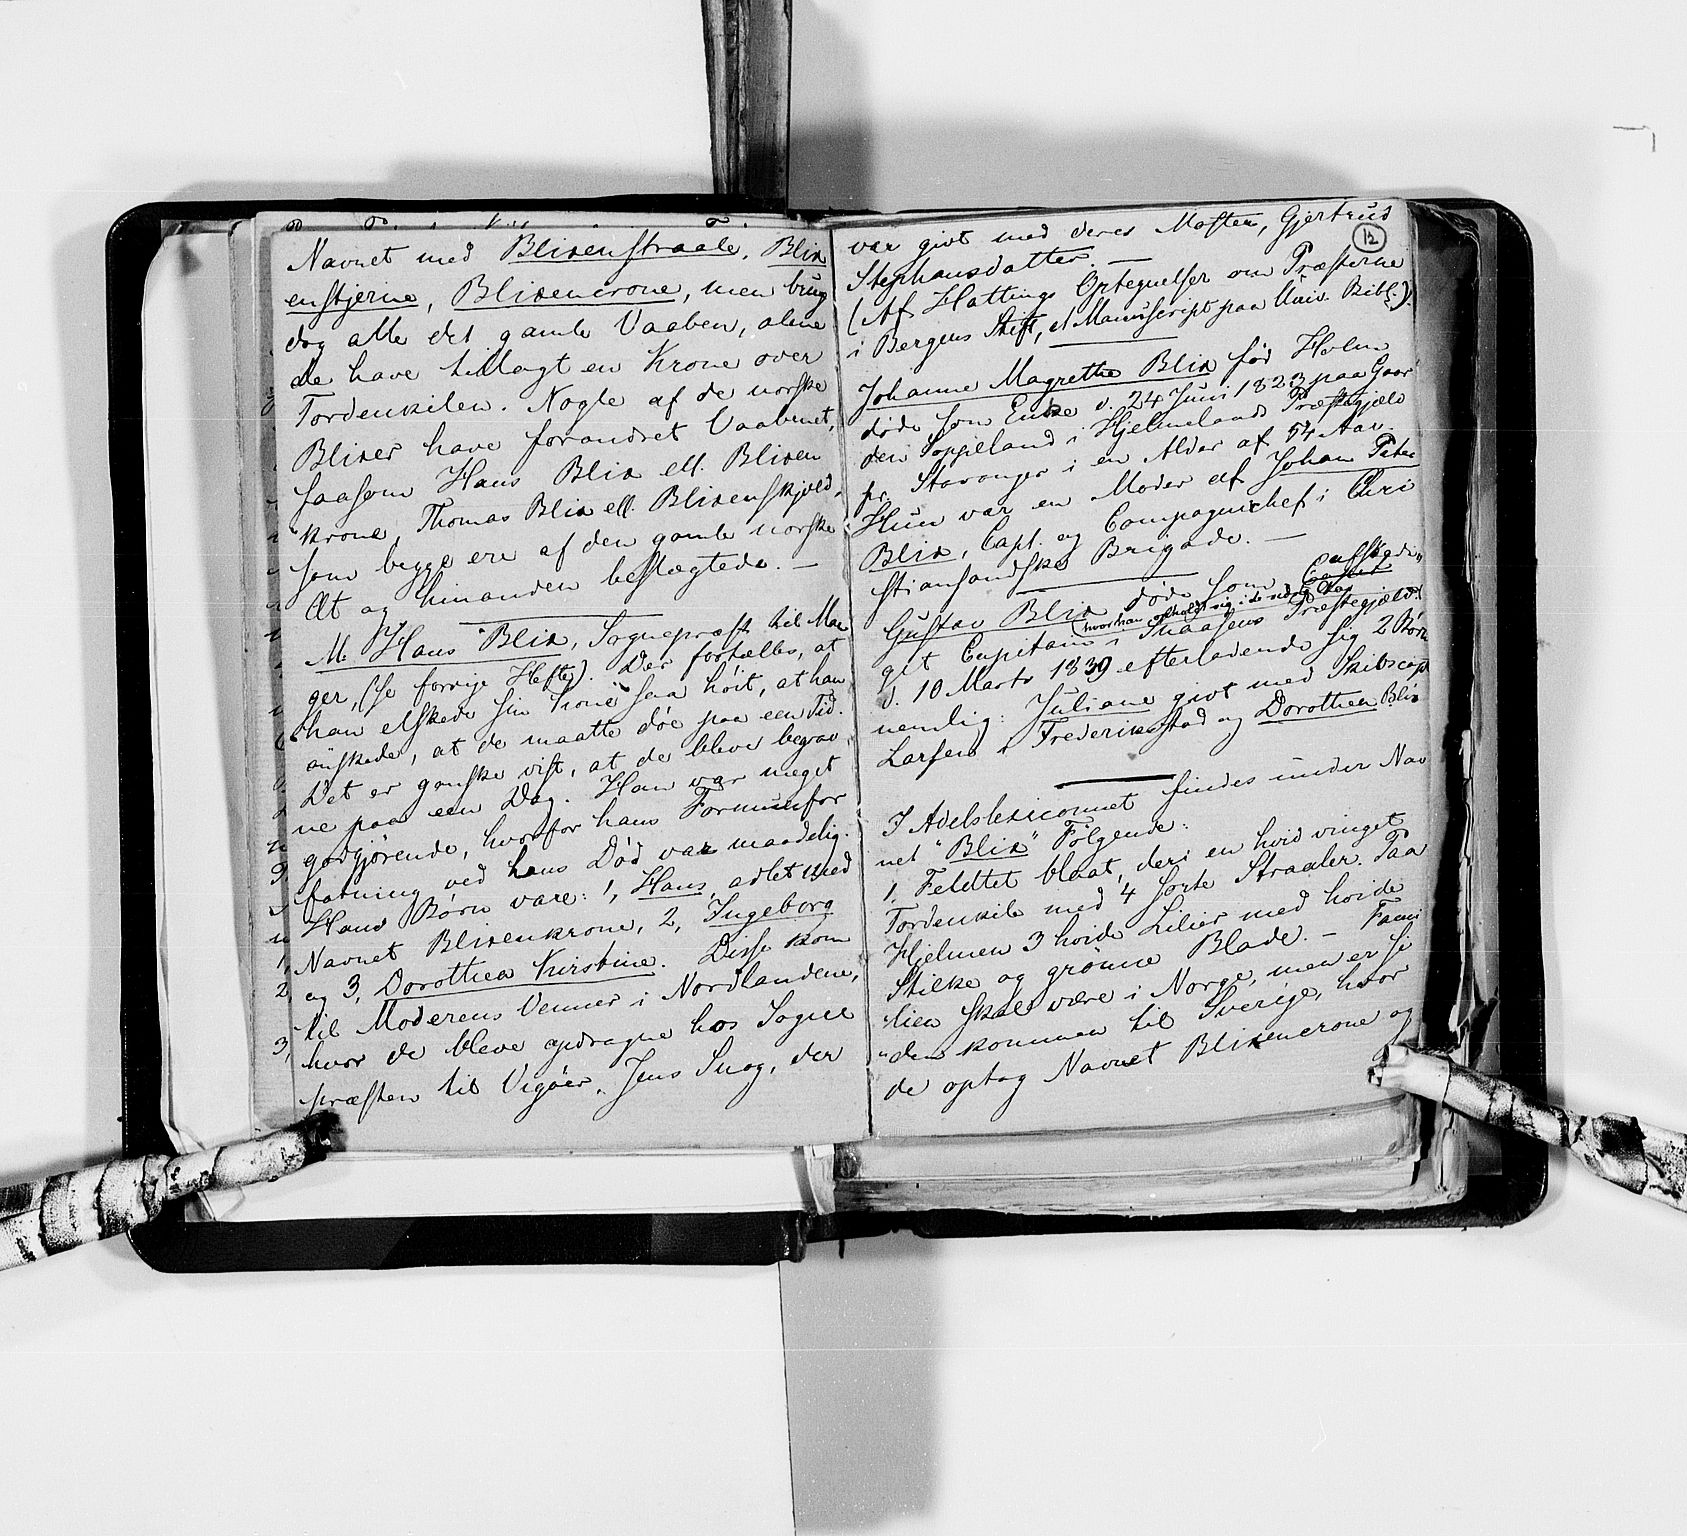 Navnet med Blixenstraale, Blix
enstjerne, Blixencrone, men brug
dog alle det gamle Vaaben, alene
de have tillagt en Krone over
Tordenkilen. Nogle af de norske
Blixer have forandret Vaabnet,
saasom Hans Blix ell. Blixen
krone, Thomas Blix ell. Blixenskjold,
som begge ere af den gamle norske
Æt og hinanden beslægtede. —
M. Hans Blix, Sognepræst til Man
ger, (se forrige Hefte). Der fortælles, at
han elskede sin Kone saa høit, at han
ønskede, at de maatte døe paa een Tid.
Det er ganske vist, at de bleve begrav
ne paa een Dag. Han war meget
godgjørende, hvorfor hans Formuesfor
fatning ved hans Død var maadelig.
Hans Børn vare: 1, Hans, adlet med
Navnet Blixenkrone, 2, Ingeborg
og 3, Dorothea Kirstine. Disse kom
til Moderens Venner i Nordlandene,
hvor de bleve opdragne hos Sogne
præsten til Vigøer, Jens Snog, der
12
var givt med deres Moster, Gjertrud
Stephansdatter. —
(Af Hattings Optegnelser om Præsterne
i Bergens Stift, et Manuscript paa Univ. Bibl.).
Johanne Magrethe Blix fød Holm
døde som Enke d. 24 Juni 1823 paa Gaar
den i Hjelmelands Præstegjæld
pr. Stavanger i en Alder af 54 Aar.
Hun var en Moder af Johan Peter
Blix, Capt. og Compagniechef i Chri
stiansandske Brigade. —
Gustav Blix døde som
(hvor han opholdt sig i de sidste Aar
get Capitain i Snaasens Præstegjæld
d. 10 Marts 1839 efterladende sig 2 Børn
nemlig: Juliane givt med Skibscapt
Larsen i Frederiksstad og Dorothea Blix
I Adelslexiconnet findes under Nav
net "Blix" Følgende:
1. Feldtet blaat, deri en hvid vinget
Tordenkile med 4 sorte Straaler. Paa
Hjelmen 3 hvide Lilier med hvide
Stilke og grønne Blade. — Fami
lien skal være i Norge, men er si
den kommen til Sverige, hvor
de optog Navnet Blixencrone og